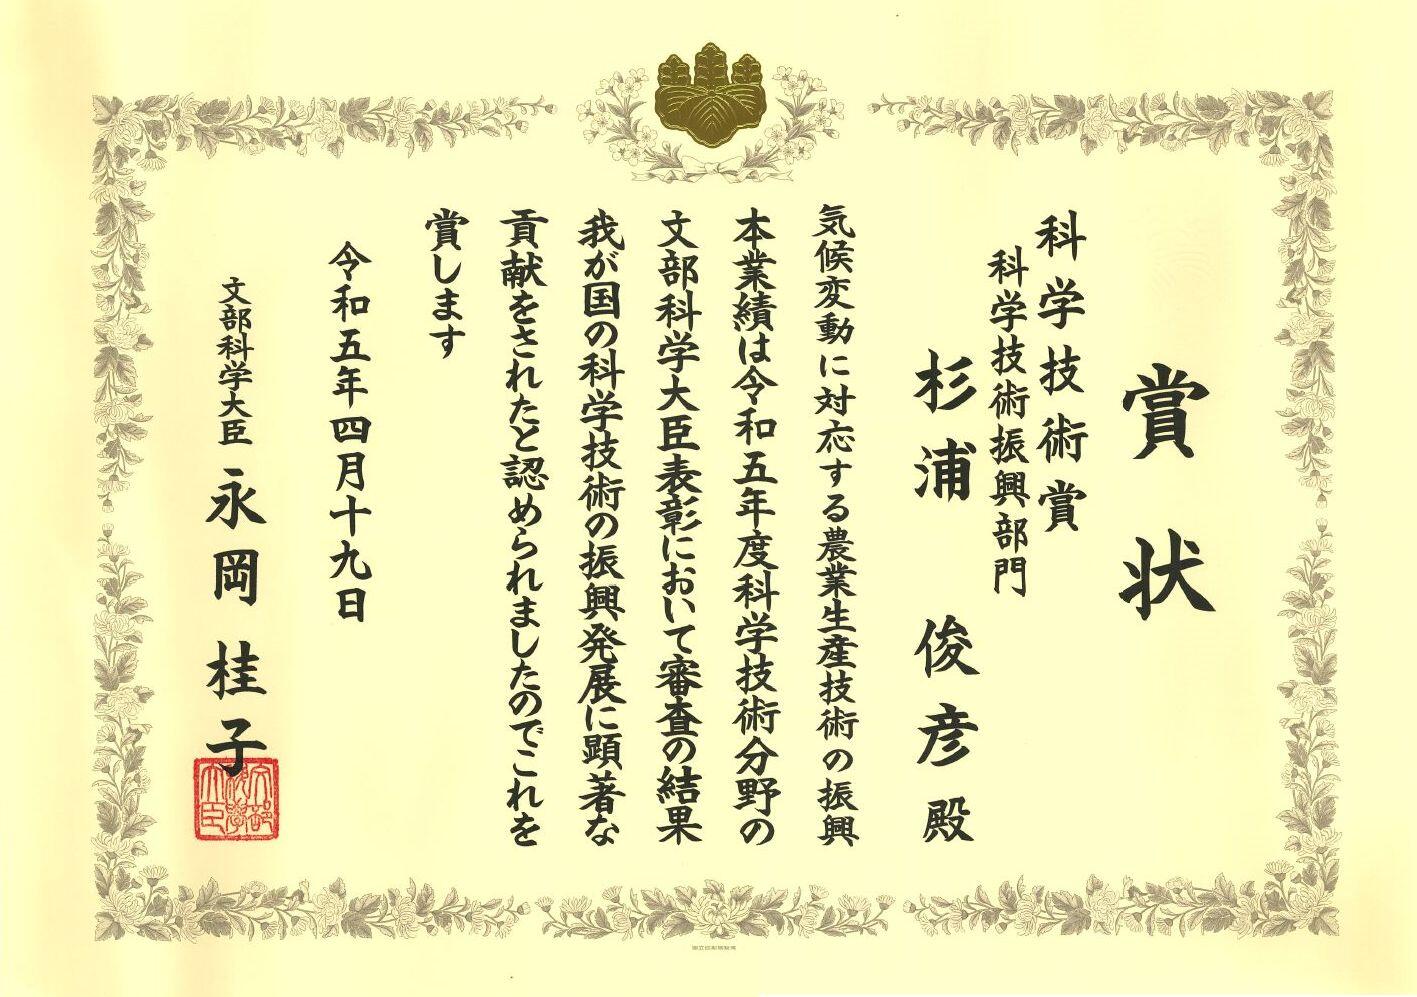 賞状
科学技術賞
科学技術振興部門
杉浦 俊彦 殿
気候変動に対応する農業生産技術の振興
本業績は令和五年度科学技術分野の
文部科学大臣表彰において審査の結果
我が国の科学技術の振興発展に顕著な
貢献をされたと認められましたのでこれを
賞します
令和五年四月十九日
文部科学大臣 永岡 桂子